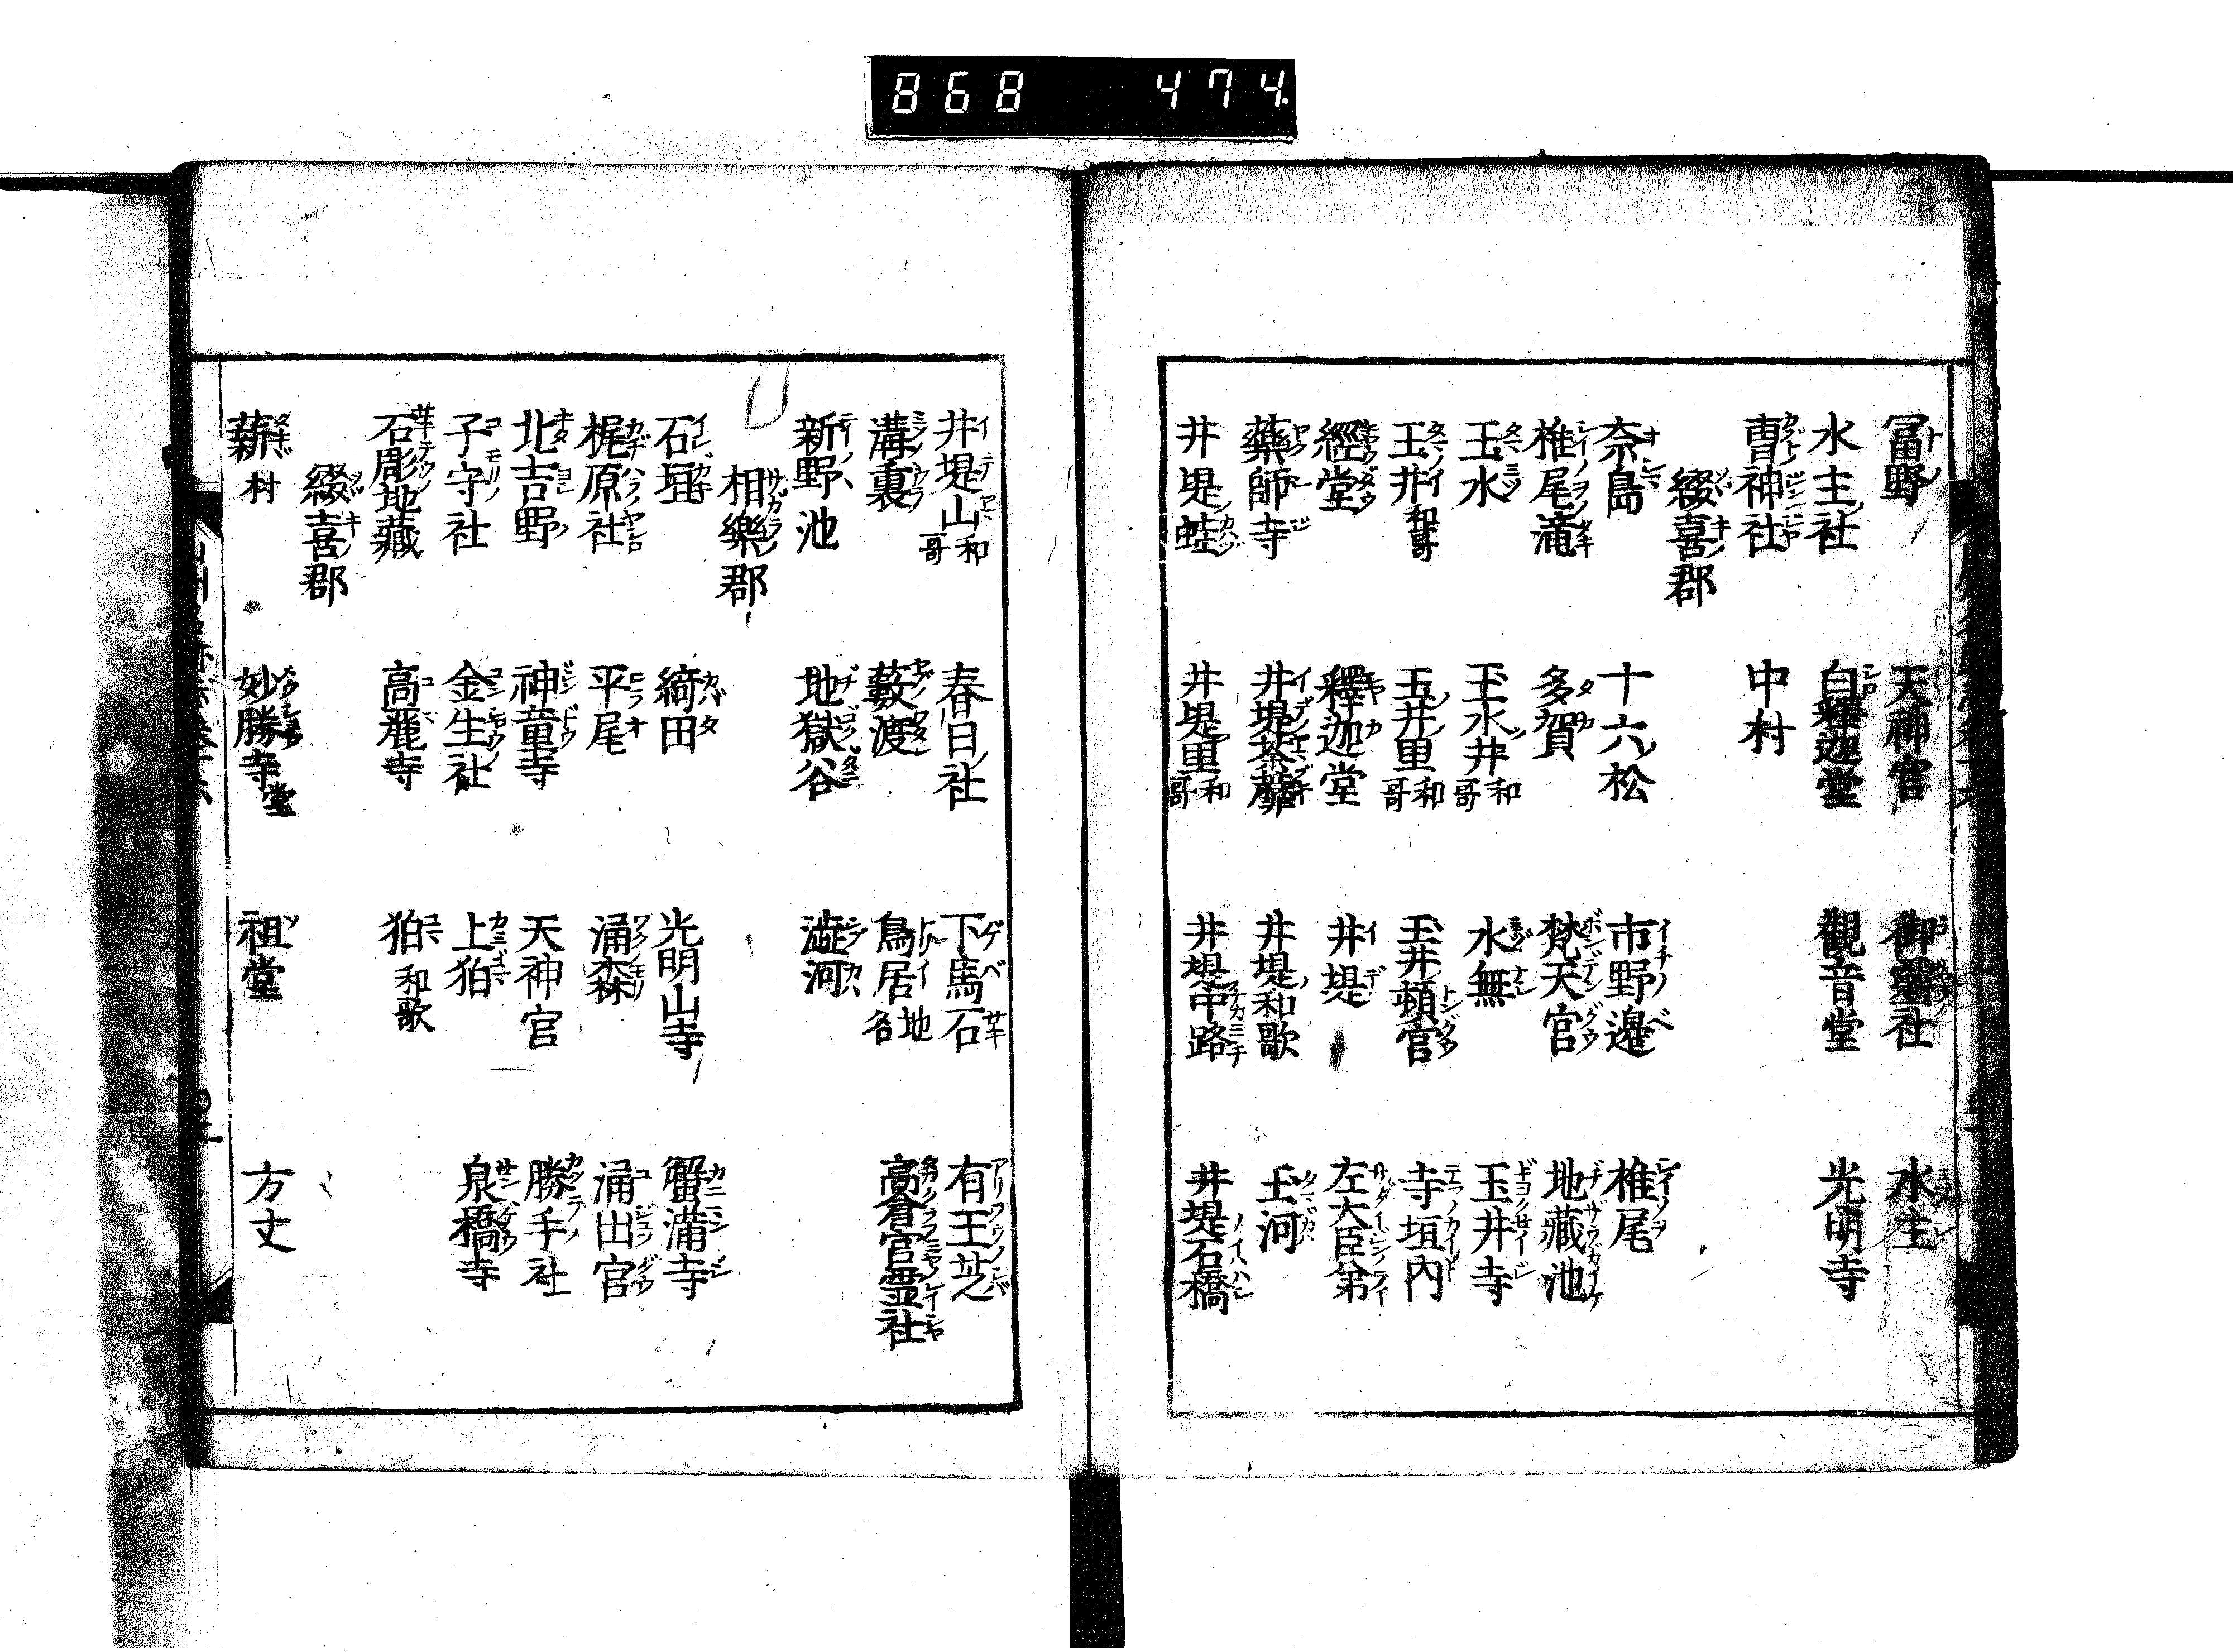 868 474
冨野 天神宮 御靈社 水主
水主社 白釋迦堂 觀音堂 光明寺
曹神社 中村
綴喜郡
奈島 十六松 市野邊 椎尾
椎尾滝 多賀 梵天宮 地藏池
玉水 玉水井和哥 水無 玉井寺
玉井和哥 玉井里和哥 玉井頓宮 寺垣内
經堂 釋迦堂 井堤 左大臣第
藥師寺 井堤茶蘼 井堤和歌 玉河
井堤蛙 井堤里和哥 井堤中路 井堤石橋
井堤山和哥 春日社 下馬石 有王芝
溝裏 藪渡 鳥居地名 高倉宮霊社
新野池 地獄谷 澁河
相樂郡
石垣 綺田 光明山寺 蟹滿寺
梶原社 平尾 涌森 涌出宮
北吉野 神童寺 天神宮 勝手社
子守社 金生社 上狛 泉橋寺
石彫地藏 高麗寺 狛和歌
綴喜郡
薪村 妙勝寺堂 祖堂 方丈